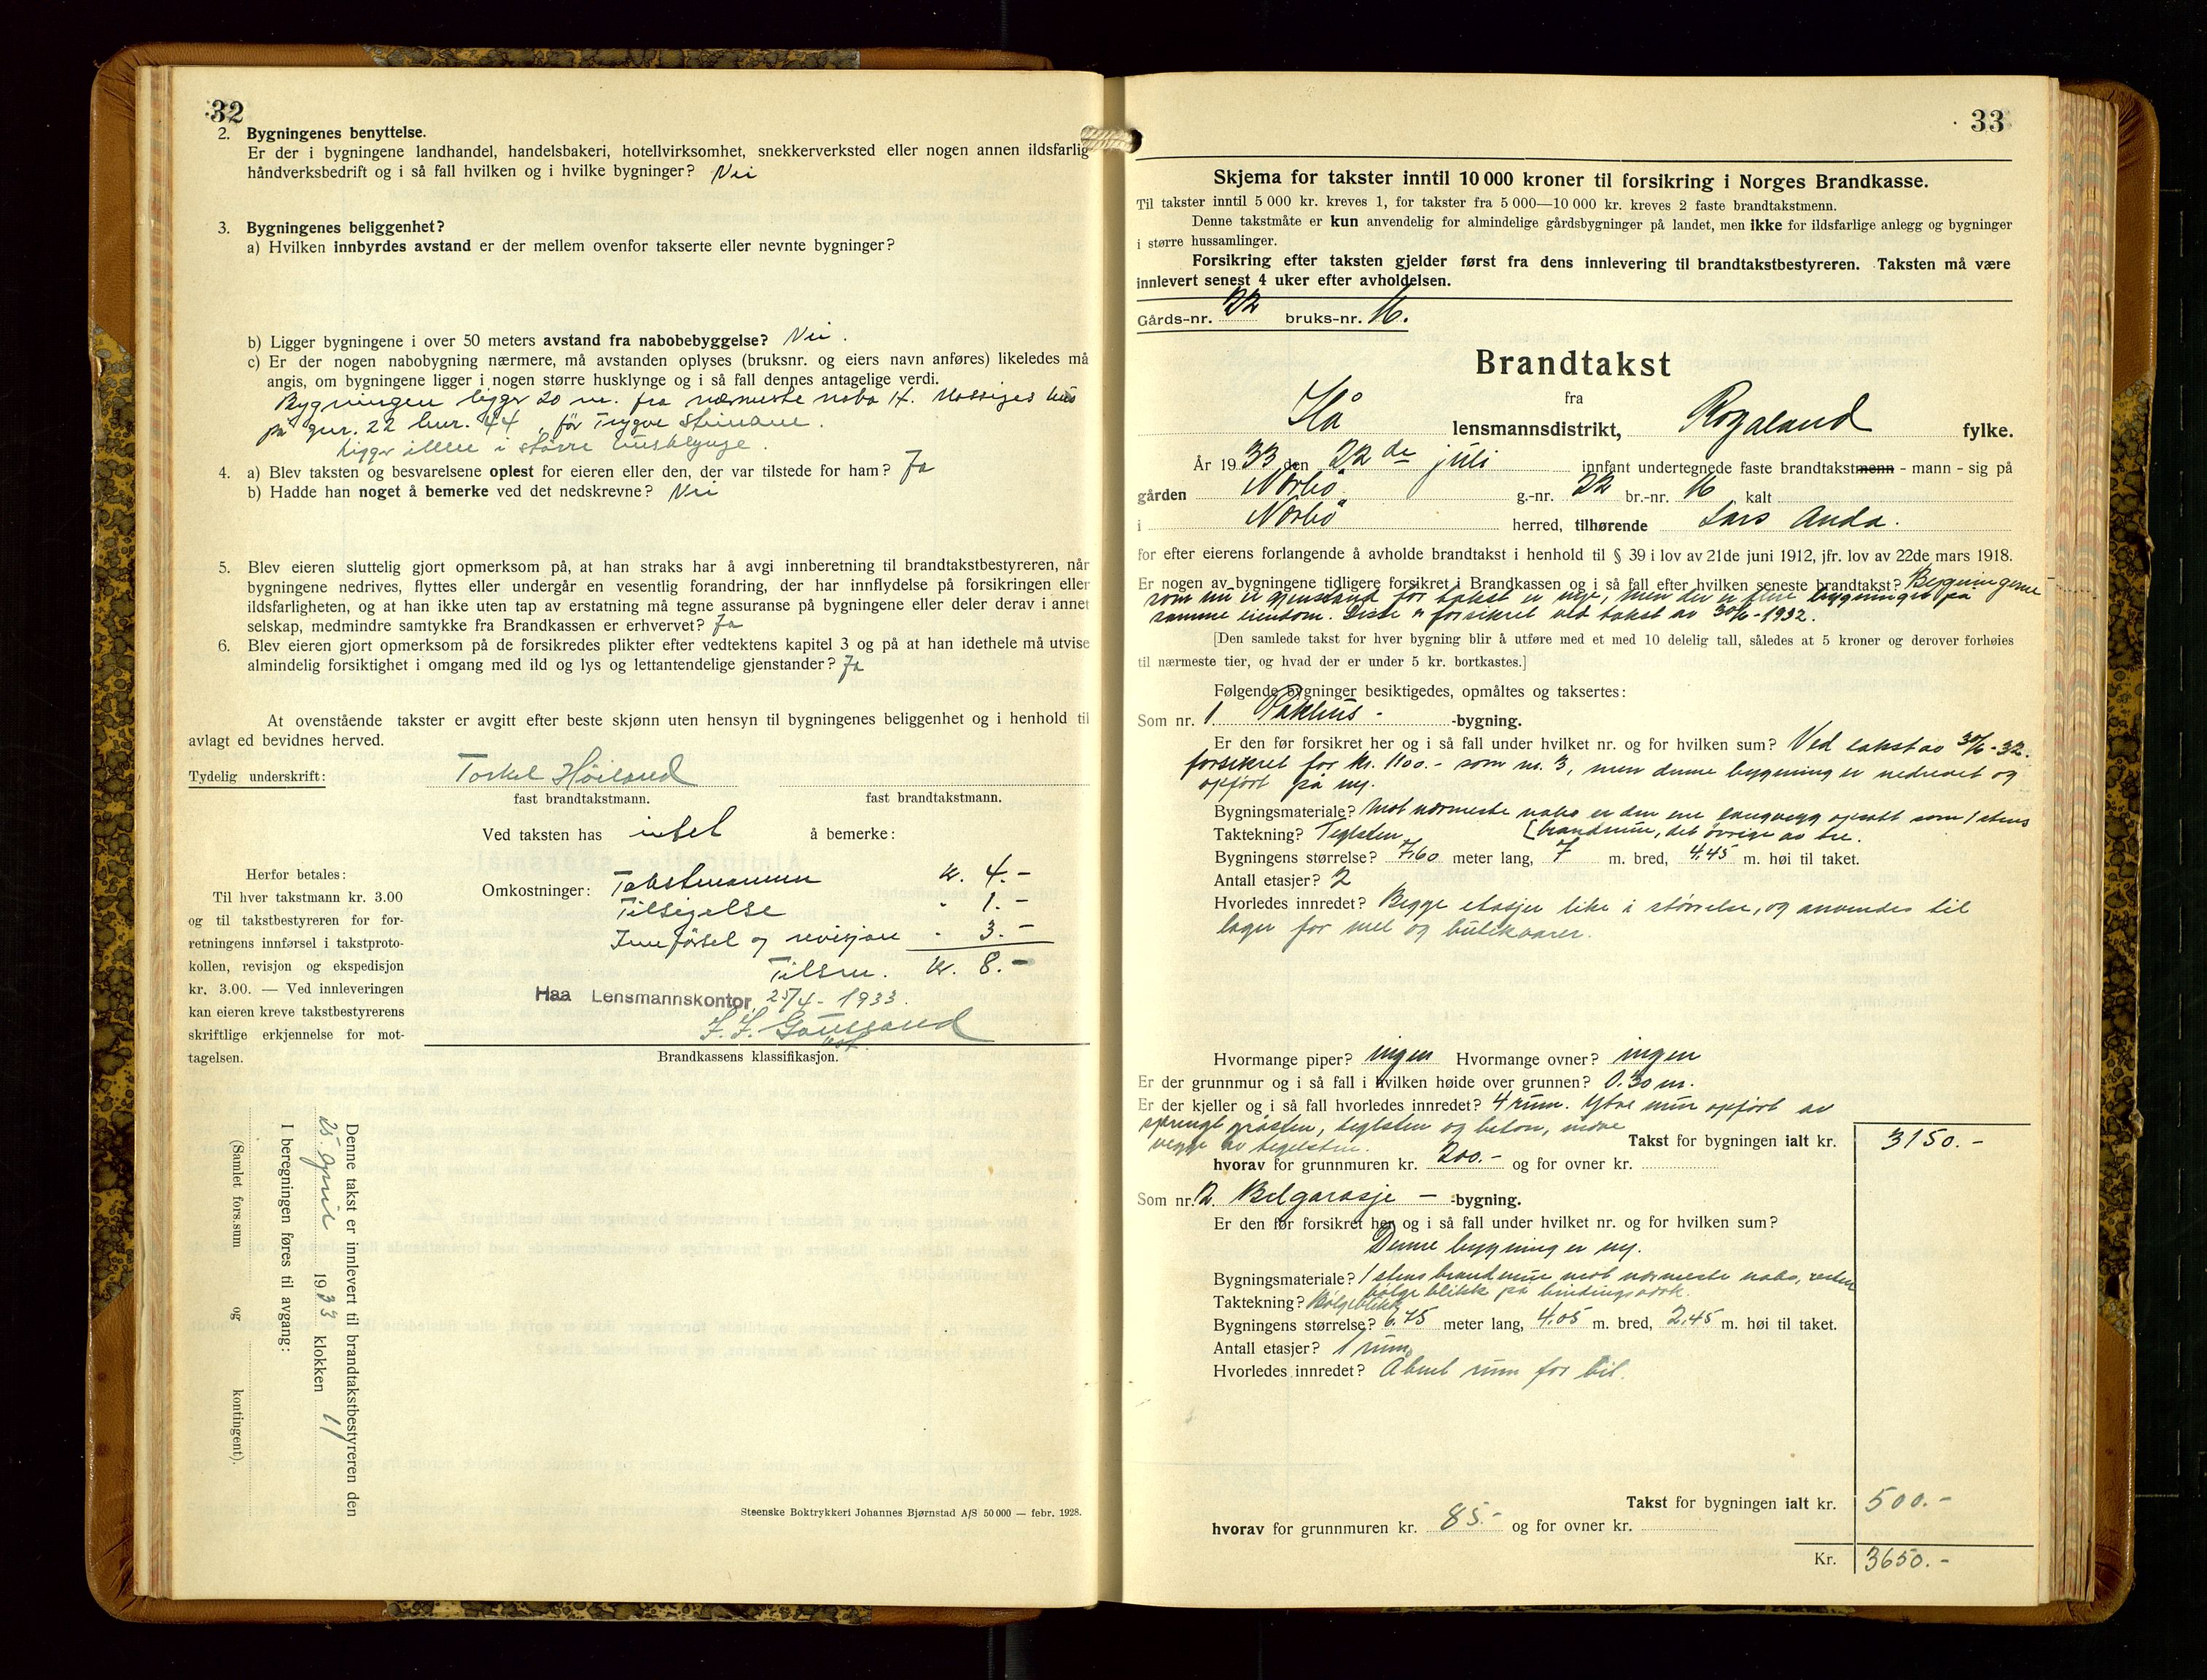 32
2. Bygningenes benyttelse.
Er der i bygningene landhandel, handelsbakeri, hotellvirksomhet, snekkerverksted eller nogen annen ildsfarlig
håndverksbedrift og i så fall hvilken og i hvilke bygninger? Nei
3. Bygningenes beliggenhet?
a) Hvilken innbyrdes avstand er der mellem ovenfor takserte eller nevnte bygninger?
b) Ligger bygningene i over 50 meters avstand fra nabobebyggelse? Nei.
c) Er der nogen nabobygning nærmere, må avstanden oplyses (bruksnr. og eiers navn anføres) likeledes må
angis, om bygningene ligger i nogen større husklynge og i så fall dennes antagelige verdi.
Bygningen ligger 20 m. fra nærmeste nabo H. hus
på gnr. 22 bnr. 44, før Trygve
Ligger ikke i større husklynge.
4. a) Blev taksten og besvarelsene oplest for eieren eller den, der var tilstede for ham? Ja
b) Hadde han noget å bemerke ved det nedskrevne? Nei
5. Blev eieren sluttelig gjort opmerksom på, at han straks har å avgi innberetning til brandtakstbestyreren, når
bygningene nedrives, flyttes eller undergår en vesentlig forandring, der har innflydelse på forsikringen eller
ildsfarligheten, og at han ikke uten tap av erstatning må tegne assuranse på bygningene eller deler derav i annet
selskap, medmindre samtykke fra Brandkassen er erhvervet? Ja
6. Blev eieren gjort opmerksom på de forsikredes plikter efter vedtektens kapitel 3 og på at han idethele må utvise
almindelig forsiktighet i omgang med ild og lys og lettantendelige gjenstander? Ja
At ovenstående takster er avgitt efter beste skjønn uten hensyn til bygningenes beliggenhet og i henhold til
avlagt ed bevidnes herved.
Tydelig underskrift: Torkel Höiland
fast brandtakstmann. fast brandtakstmann.
Ved taksten has intet å bemerke:
Herfor betales:
Til hver takstmann kr. 3.00
og til takstbestyreren for for-
retningens innførsel i takstproto-
kollen, revisjon og ekspedisjon
kr. 3.00. — Ved innleveringen
kan eieren kreve takstbestyrerens
skriftlige erkjennelse for mot-
tagelsen.
Omkostninger: Takstmannen kr. 4.-
Tilsigelse " 1.-
Innførsel og revisjon " 3.-
Tilsm. kr. 8.-
Haa Lensmannskontor, 25/4 - 1933.
Brandkassens klassifikasjon.
Denne takst er innlevert til brandtakstbestyreren den
25. april 1933 klokken 11
I beregningen føres til avgang:
(Samlet fors.sum og kontingent).
Steenske Boktrykkeri Johannes Bjørnstad A/S 50 000 — febr. 1928.
33
Skjema for takster inntil 10 000 kroner til forsikring i Norges Brandkasse.
Til takster inntil 5 000 kr. kreves 1, for takster fra 5 000—10 000 kr. kreves 2 faste brandtakstmenn.
Denne takstmåte er kun anvendelig for almindelige gårdsbygninger på landet, men ikke for ildsfarlige anlegg og bygninger
i større hussamlinger.
Forsikring efter taksten gjelder først fra dens innlevering til brandtakstbestyreren. Taksten må være
innlevert senest 4 uker efter avholdelsen.
Gårds-nr. 22 bruks-nr. 16.
Brandtakst
fra
Hå lensmannsdistrikt, Rogaland fylke.
År 1933, den 22 de juli innfant undertegnede faste brandtakstmenn - mann - sig på
gården Nærbö g.-nr. 22 br.-nr. 16 kalt
i Nærbö herred, tilhørende Lars Anda.
for efter eierens forlangende å avholde brandtakst i henhold til § 39 i lov av 21de juni 1912, jfr. lov av 22de mars 1918.
Er nogen av bygningene tidligere forsikret i Brandkassen og i så fall efter hvilken seneste brandtakst? Bygningene
som nu er gjenstand for takst er nye, men der er flere bygninger på
samme eiendom. Disse er forsikret ved takst av 30/6-1932.
[Den samlede takst for hver bygning blir å utføre med et med 10 delelig tall, således at 5 kroner og derover forhøies
til nærmeste tier, og hvad der er under 5 kr. bortkastes.]
Følgende bygninger besiktigedes, opmåltes og taksertes:
Som nr. 1 Pakhus - -bygning.
Er den før forsikret her og i så fall under hvilket nr. og for hvilken sum? Ved takst av 30/6-32.
forsikret for kr. 1100.- som nr. 3, men denne bygning er nedrevet og
opført på ny.
Bygningsmateriale? Mot nærmeste nabo er den ene langvegg opsatt som 1 stens
Taktekning? Teglsten [brandmur, det øvrige av tre.
Bygningens størrelse? 7,60 meter lang, 7 m. bred, 4,45 m. høi til taket.
Antall etasjer? 2
Hvorledes innredet? Begge etasjer like i størrelse, og anvendes til
lager for mel og butikvarer.
Hvormange piper? ingen Hvormange ovner? ingen
Er der grunnmur og i så fall i hvilken høide over grunnen? 0.30 m.
Er der kjeller og i så fall hvorledes innredet? 4 rum. Ytre mur opført av
sprengt gråsten, teglsten og beton, indre
vegge av teglsten. Takst for bygningen ialt kr. 3150.-
hvorav for grunnmuren kr. 200.- og for ovner kr.
Som nr. 2. Bilgarasje - -bygning.
Er den før forsikret her og i så fall under hvilket nr. og for hvilken sum?
Denne bygning er ny.
Bygningsmateriale? 1 stens brandmur mot nærmeste nabo, resten
bølgeblikk på bindingsverk.
Taktekning? Bølgeblikk
Bygningens størrelse? 6,75 meter lang, 4,05 m. bred, 2,45 m. høi til taket.
Antall etasjer? 1 rum,
Hvorledes innredet? Åbent rum for bil.
Takst for bygningen ialt kr. 500.-
hvorav for grunnmuren kr. 85.- og for ovner kr.
Kr. 3650.-